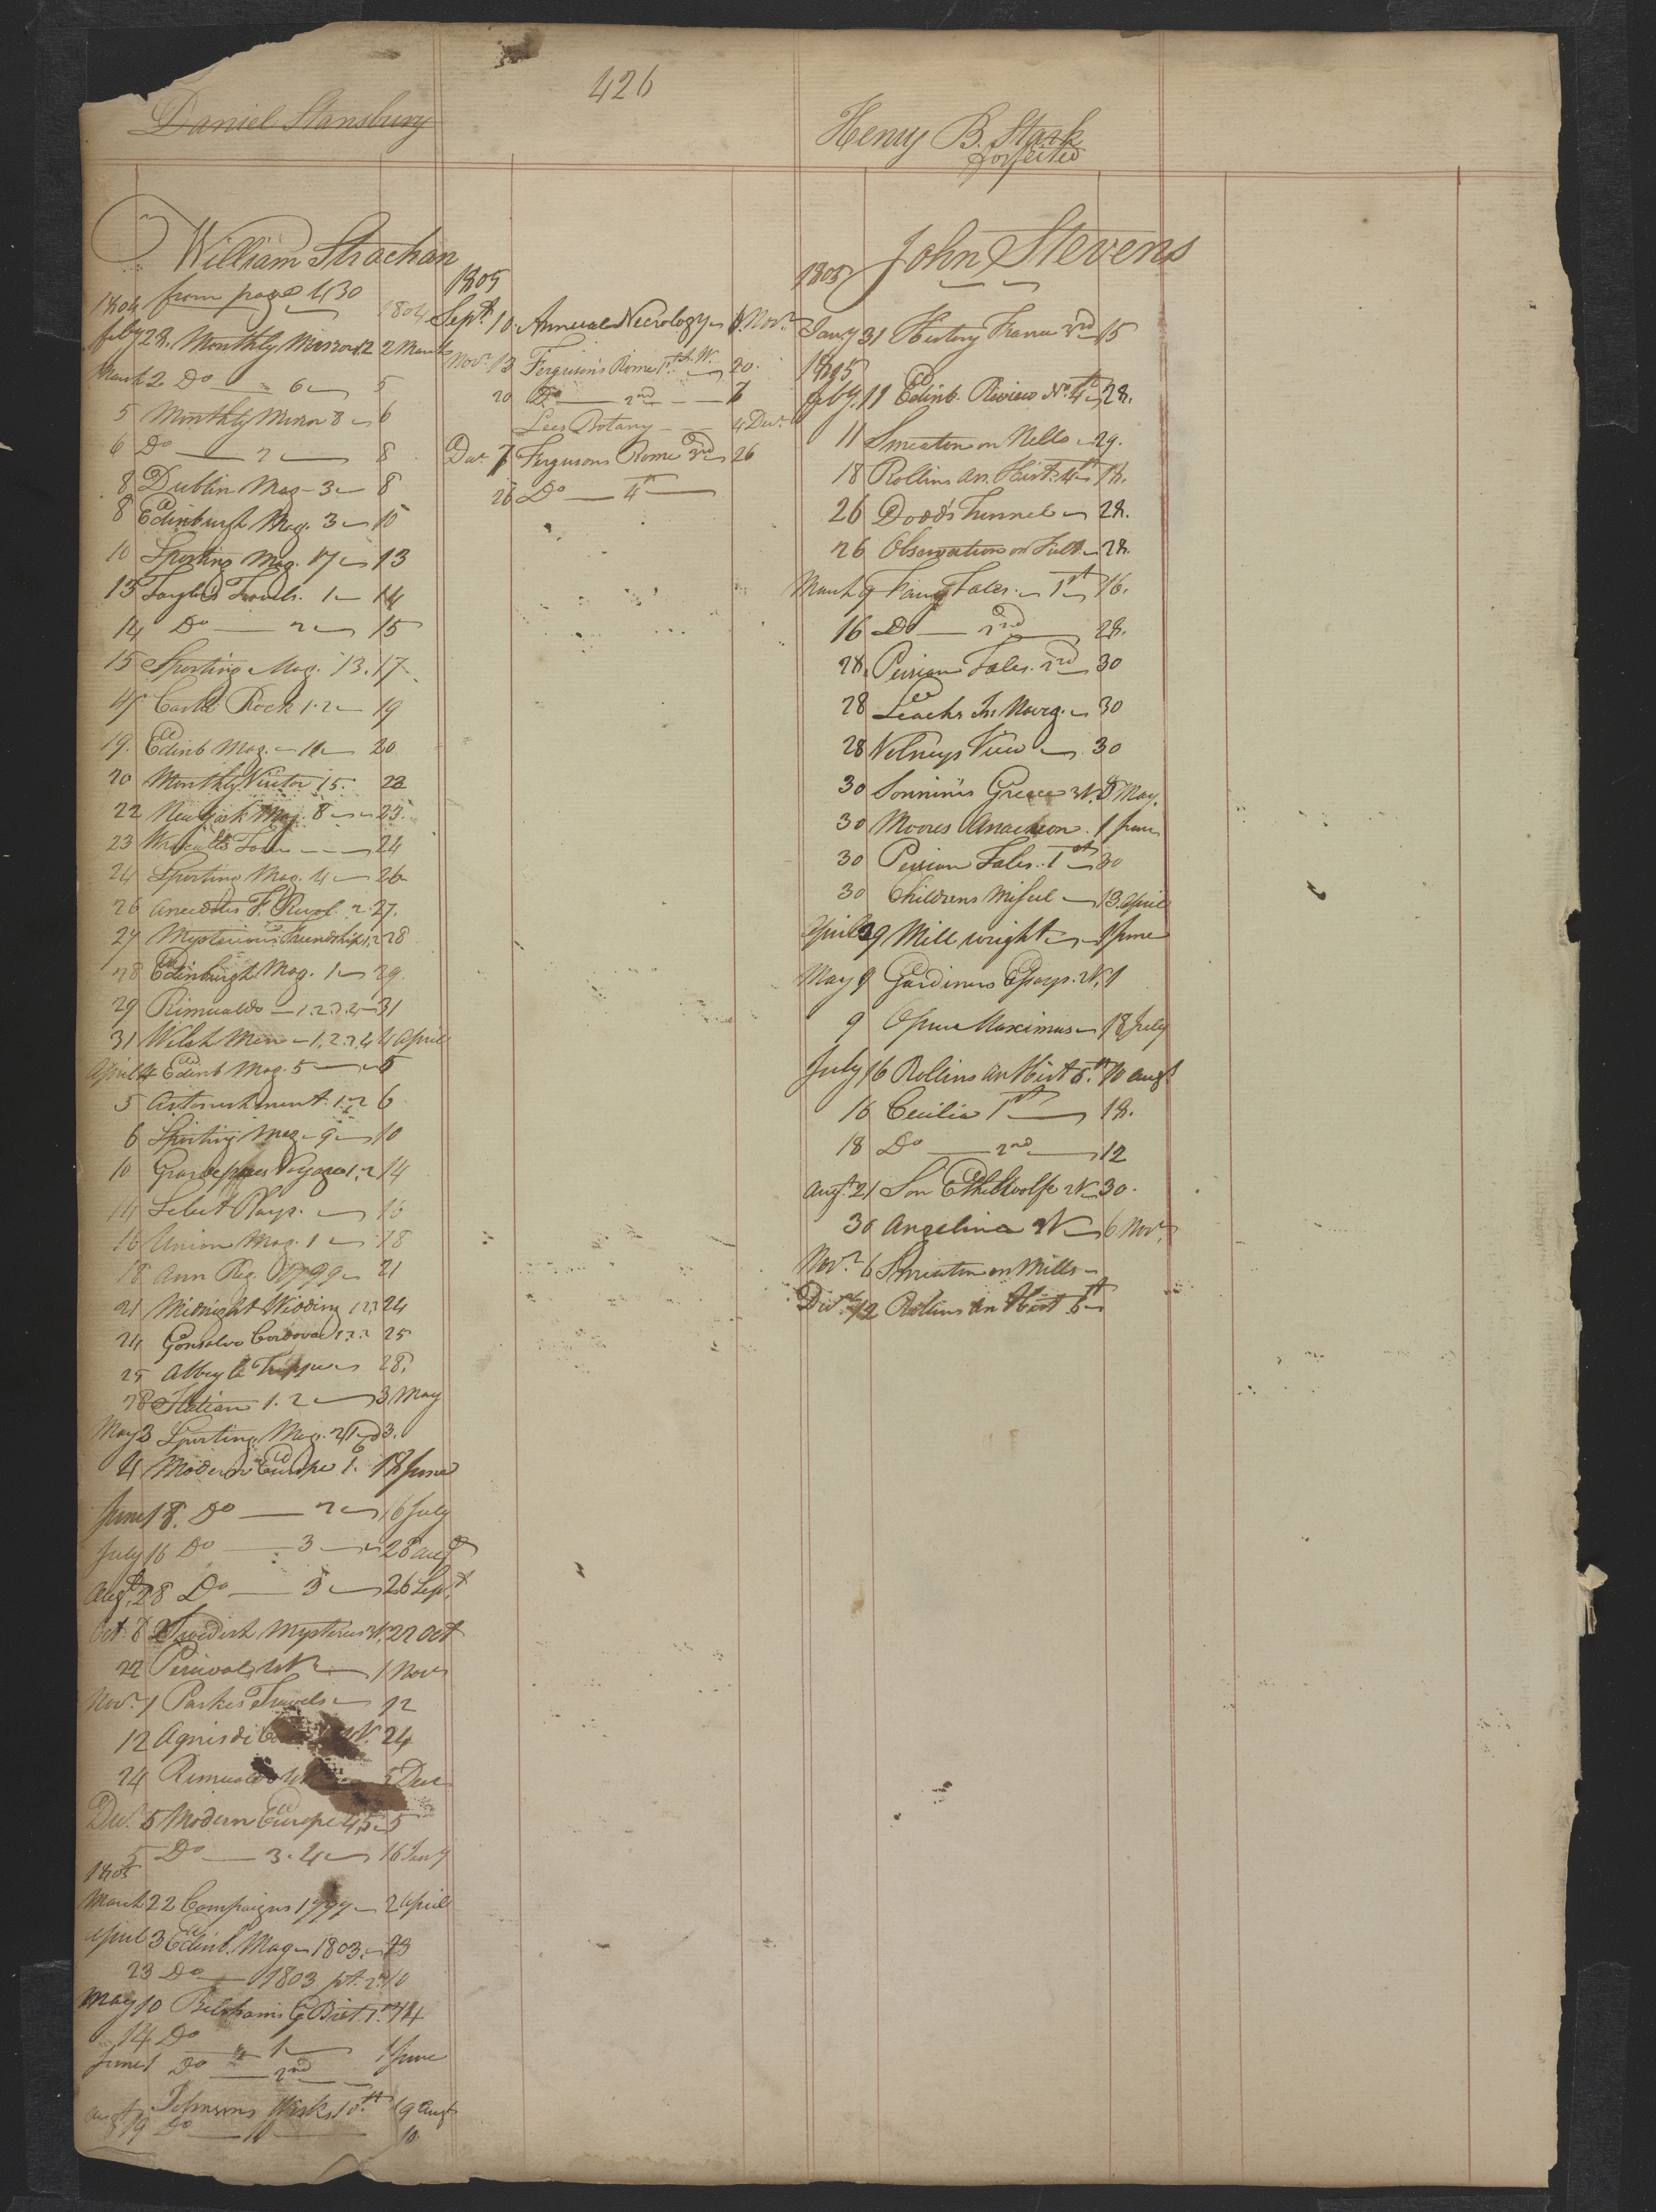 426
Daniel Stansbury
Henry B. Stark
forfeited
William Strachan
from page 430
1804
1804
Feby 28. Monthly Mirror 12 2 March
March 2 Do 6 5
5 Monthly Mirror 8 6
6 Do 7 8
8 Dublin Mag 3 8
8 Edinburgh Mag. 3 10
10 Sporting Mag. 17 13
13 Travels. 1 14
14 Do 2 15
15 Sporting Mag. 13. 17
17 Castle Rock 1.2 19
19. Edinb Mag. 11 20
20 Monthly Visitor 15. 22
22 New York Mag. 8 23.
23 24
24 Sporting Mag. 4 26
26 Anecdotes F. Revol. 2 27.
27 Mysterious Friendship 1,2 28
28 Edinburgh Mag. 1 29.
29 Rimualdo 1.2.3.4 31
31 Welsh Men 1.2.3.4 4 April
April 4 Edinb Mag. 5 5
5 Astonishment. 1.2 6
6 Sporting Mag 9 10
10 Voyage 1.2 14
14 Select Plays. 16
16 Union Mag. 1 18
18 Ann Reg. 1799 21
21 Midnight Wedding 1 2 3 24
24 Gonsalvo Cordova 1 2 3 25
25 Abbey La Trappe 28.
28 Italian 1. 2 3 May
May 3 Sporting Mag. 21 3.
4 Modern Europe 1. 18 June
June 18. Do 2 16 July
July 16 Do 3 28 Augt
Augt. 28 Do 3 26 Sept.
Oct. 8 Swedish Mysteries 22 Oct
22 Percival 1 Nov
Novr. 1 Parkes Travels 12
12 Agnes di 24
24 Rimualdo 5 Decr
Decr. 5 Modern Europe 4,5 5
5 Do 3.4 16 Jany
1805
March 22 Campaigns 1799 2 April
April 3 Edinb. Mag 1803. 23
23 Do 1803 pt. 2 10
May 10 Belshams G Brit 1st 14
14 Do 1 1 June
June 1 Do 2nd
Johnsons Works 10th 19 Augt
Augt 19 Do 11 10
1805
Sept. 10. Annual Necrology 1. Novr.
Novr 13 Ferguson's Rome 1st 20.
20 Do 2nd 7
Lees Botany 4 Decr.
Decr. 7 Fergusons Rome 3rd 26
26 Do 4th
John Stevens
1805
Jany 31 History France 3rd 15
1805
Feby. 11 Edinb. Review No. 4th 28.
11 Smeaton on Mills 29.
18 Rollins An. Hist. 4th 18.
26 Dodds Tunnel 28.
26 Observation on 28.
March 9 Fairy Tales 1st 16.
16 Do 2nd 28.
28. Persian Tales. 2nd 30
28 Leachs In. Navig. 30
28 Volneys View 30
30 Sonninis Greece 8 May.
30 Moores Anacreon. 1 June
30 Persian Tales. 1st 30
30 Childrens Miscel 13 April
April 29 Mill wright 1 June
May 9 Gardiners Essays. 9
9 Opus Maximus 18 July
July 16 Rollins An Hist 5th. 10 Augt
16 Cecilia 1st 18.
18 Do 2nd 12
Augt. 21 Son Ethelwolfe 30.
30 Angelina 6 Novr.
Novr. 6 Smeaton on Mills
Decr. 12 Rollins An Hist 5th